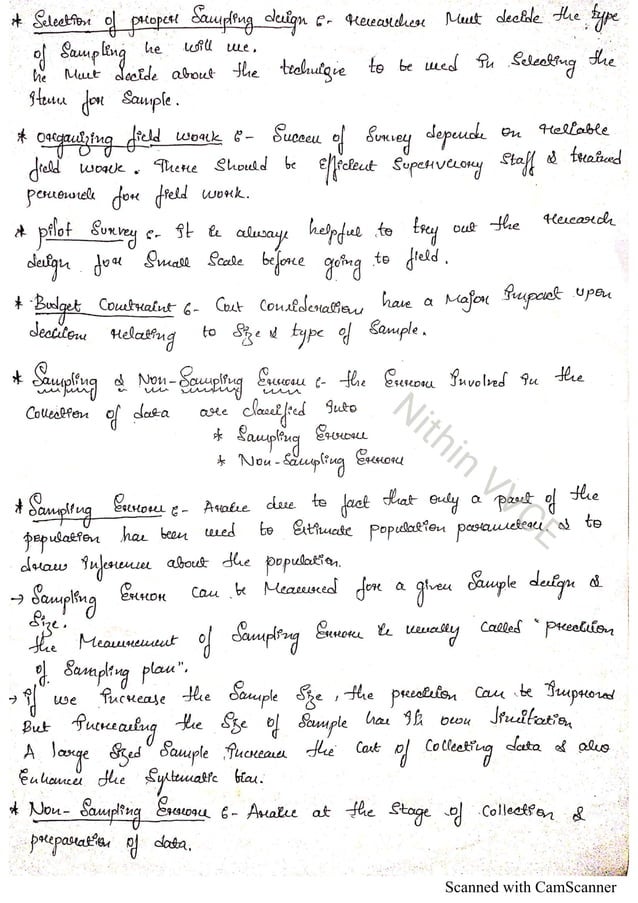 * Selection of proper Sampling design :- Researcher Must decide the type
of Sampling he will use.
he Must decide about the technique to be used in Selecting the
Items for Sample.
* Organizing field work :- Success of Survey depends on reliable
field work. There should be Efficient Supervisory Staff & trained
personnels for field work.
* pilot Survey :- It is always helpful to try out the research
design for Small Scale before going to field.
* Budget Constraint :- Cost Consideration have a Major Impact upon
decisions relating to Size & type of Sample.
* Sampling & Non-Sampling Errors :- the Errors Involved in the
Collection of data are classified into
* Sampling Errors
* Non-Sampling Errors
* Sampling Errors :- Arise due to fact that only a part of the
population has been used to Estimate population parameters & to
draw inferences about the population.
→ Sampling Error can be Measured for a given Sample design &
Size.
the Measurement of Sampling Errors is usually called "precision
of Sampling plan".
→ If we Increase the Sample Size, the precision can be Improved
But Increasing the Size of Sample has its own limitation
A large Sized Sample Increases the Cost of Collecting data & also
Enhances the Systematic bias.
* Non-Sampling Errors :- Arise at the Stage of Collection &
preparation of data.
Nithin VVCE
Scanned with CamScanner